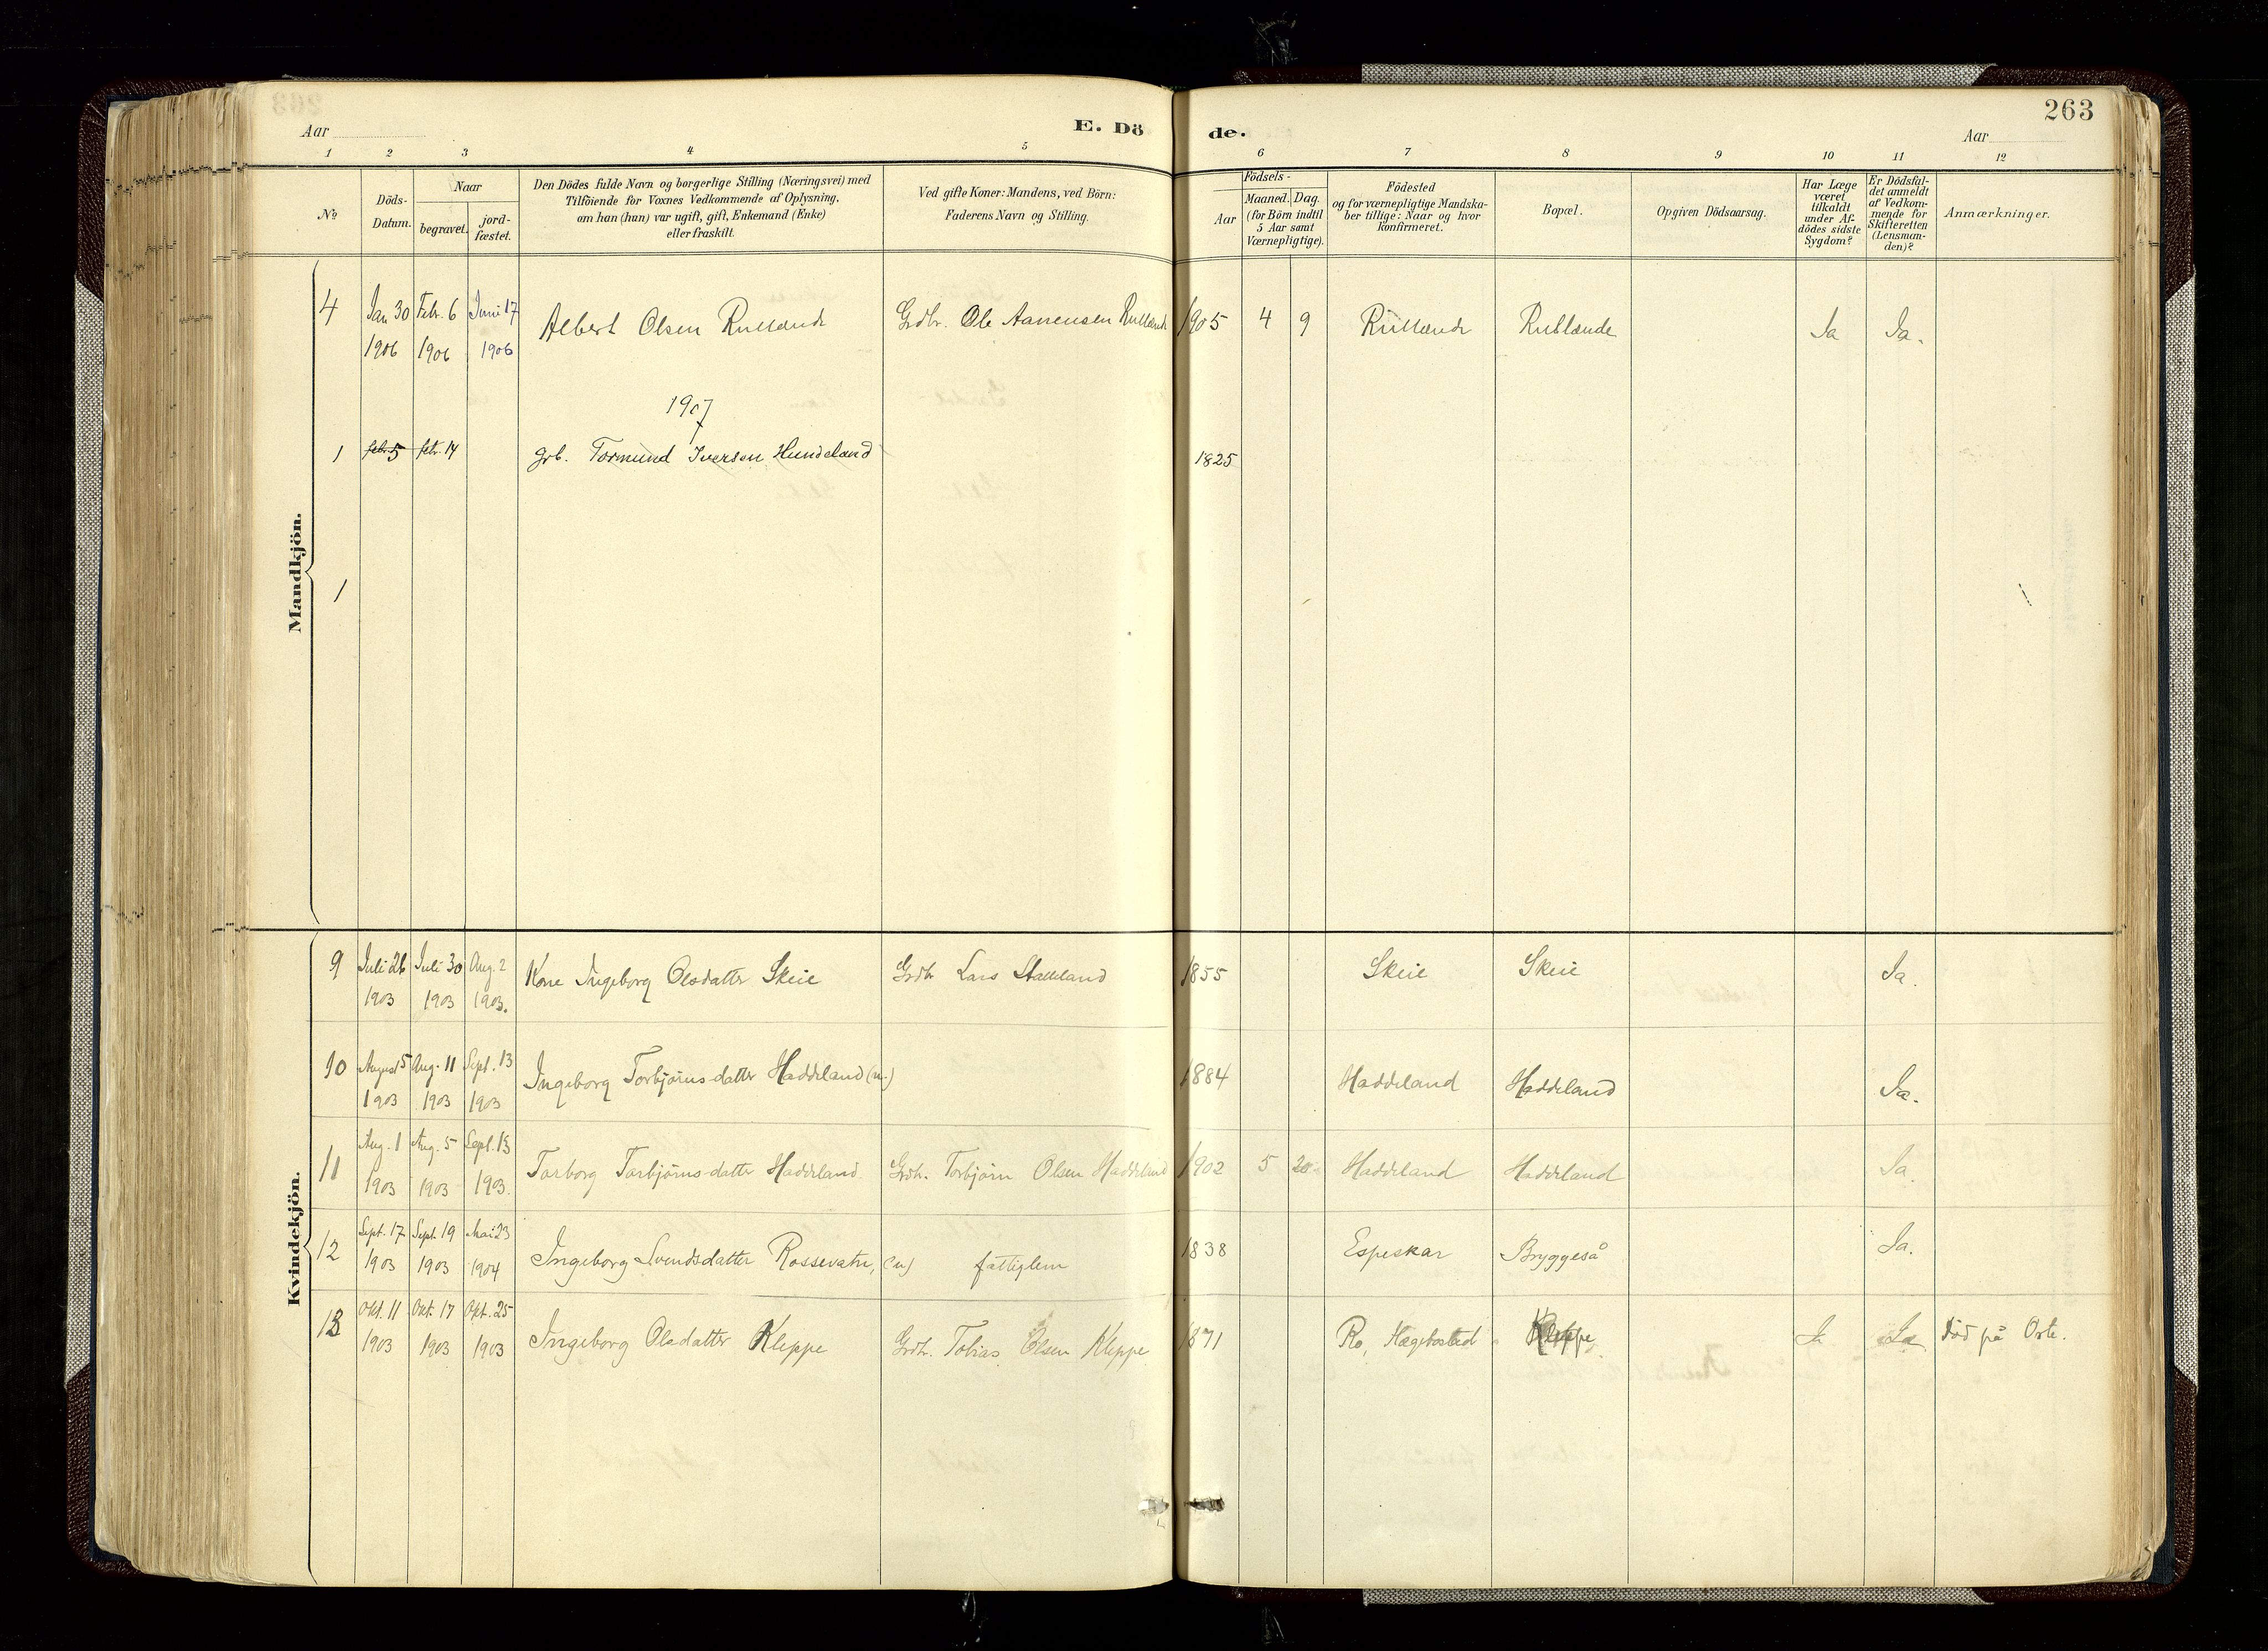 263
Aar
E. Dö
de.
Aar
1 2 3 4 5 6 7 8 9 10 11 12
№
Döds-
Datum.
Naar
begravet.
jord-
fæstet.
Den Dödes fulde Navn og borgerlige Stilling (Næringsvei) med
Tilföiende for Voxnes Vedkommende af Oplysning,
om han (hun) var ugift, gift, Enkemand (Enke)
eller fraskilt.
Ved gifte Koner: Mandens, ved Börn:
Faderens Navn og Stilling.
Födsels-
Aar
Maaned.
Dag.
(for Börn indtil
5 Aar samt
Værnepligtige).
Födested
og for værnepligtige Mandska-
ber tillige: Naar og hvor
konfirmeret.
Bopæl.
Opgiven Dödsaarsag.
Har Læge
været
tilkaldt
under Af-
dödes sidste
Sygdom?
Er Dödsfal-
det anmeldt
af Vedkom-
mende for
Skifteretten
(Lensman-
den)?
Anmærkninger.
Mandkjön.
4 Jan 30 Febr. 6 Juni 17 Albert Olsen Rullandt Grdbr. Ole Aanensen Rulland 1905 4 9 Rulland Ja Ja.
1906 1906 1906
1907
1 febr. 5 febr. 14 grb. Tormund Iversen Hundeland 1825
1
Kvindekjön.
9 Juli 26 Juli 30 Aug. 2 Kone Ingeborg Olsdatter Skeie Grdb Lars Stalleland 1855 Skeie Skeie Ja.
1903 1903 1903.
10 August 5 Aug. 11 Sept. 13 Ingeborg Torbjørns-datter Haddeland (u.) 1884 Haddeland Haddeland Ja.
1903 1903 1903
11 Aug. 1 Aug. 5 Sept. 13 Torborg Torbjørns-datter Haddeland Grdb. Torbjørn Olsen Haddeland 1902 5 Haddeland Haddeland Ja.
1903 1903 1903.
12 Sept. 17 Sept. 19 Mai 23 Ingeborg Svendsdatter Rossevatn, (u) fattiglem 1838 Espeskar Bryggeså Ja.
1903 1903 1904
13 Okt. 11 Okt. 17 Okt. 25 Ingeborg Olsdatter Kleppe Grdb. Tobias Olsen Kleppe 1871 Ro, Hægebostad Kleppe Ja Ja død på
1903 1903 1903